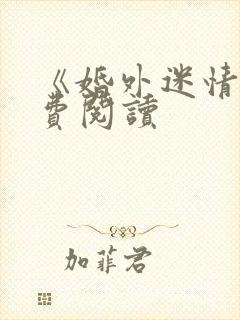 《婚外迷情
費閱讀
加菲君